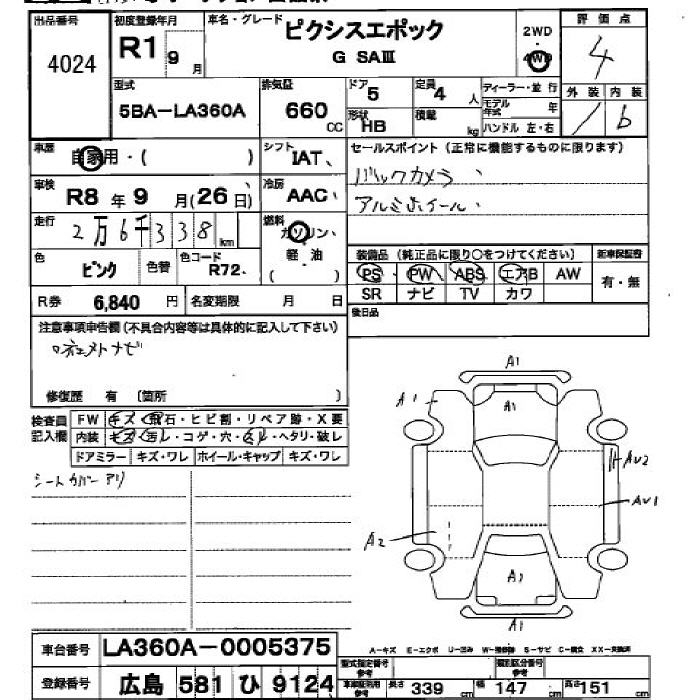 出品番号 4024
初度登録年月 R1 9月
車名・グレード ピクシスエポック
G SAⅢ
2WD
4WD
評価点 4
外装 内装 b
型式 5BA-LA360A
排気量 660 CC
ドア 5
形状 HB
定員 4 人
積載 kg
ディーラー・並行
モデル年式 年
ハンドル 左・右
車歴 自家用・( )
シフト IAT、
セールスポイント (正常に機能するものに限ります)
バックカメラ、
アルミホイール、
車検 R8 年 9 月(26 日)
冷房 AAC、
走行 2万6千338 km
燃料 ガソリン、
軽・油
( )
色 ピンク
色替
色コード R72、
装備品 (純正品に限り○をつけてください)
新車保証書
PS PW ABS エアB AW
有・無
SR ナビ TV カワ
R券 6,840 円
名変期限 月 日
後日品
注意事項申告欄(不具合内容等は具体的に記入して下さい)
修復歴 有 〔箇所 〕
検査員記入欄
FW キズ・飛石・ヒビ割・リペア跡・X要
内装 キズ・汚レ・コゲ・穴・スレ・ヘタリ・破レ
ドアミラー キズ・ワレ ホイール・キャップ キズ・ワレ
シートカバーアリ
A1
A1
A1
AU2
AU1
A2
A1
A1
車台番号 LA360A-0005375
A-キズ E-エクボ U-凹み W-補修跡 S-サビ C-腐食 XX-交換済
登録番号 広島 581 ひ 9124
型式指定番号 参考
類別区分番号 参考
長さ 339 cm
幅 147 cm
高さ 151 cm